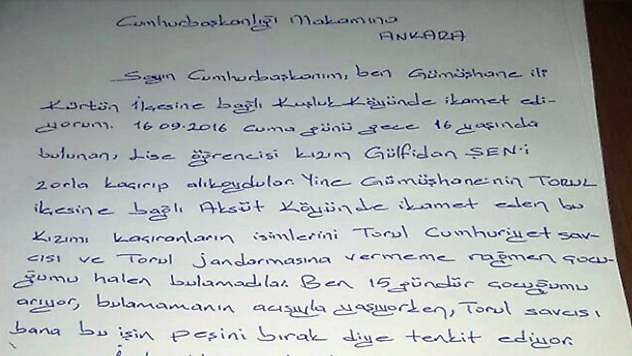 Cumhurbaşkanlığı Makamına
ANKARA
Sayın Cumhurbaşkanım, ben Gümüşhane ili
Kürtün ilçesine bağlı Kuşluk Köyünde ikamet edi-
yorum. 16.09.2016 cuma günü gece 16 yaşında
bulunan, Lise öğrencisi kızım Gülfidan ŞEN'i
zorla kaçırıp alıkoydular. Yine Gümüşhane'nin TORUL
ilçesine bağlı Aksüt Köyünde ikamet eden bu
kızımı kaçıranların isimlerini Torul Cumhuriyet sav-
cısı ve Torul jandarmasına vermeme rağmen çocu-
ğumu halen bulamadılar. Ben 15 gündür çocuğumu
arıyor, bulamamanın acısıyla yaşıyorken, Torul savcısı
bana bu işin peşini bırak diye tenkit ediyor.